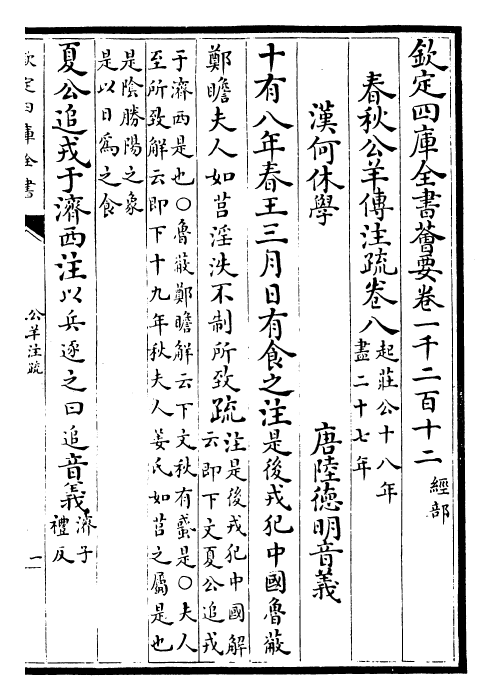 欽定四庫全書薈要卷一千二百十二 經部
春秋公羊傳注疏卷八
起莊公十八年
盡二十七年
漢何休學 唐陸德明音義
十有八年春王三月日有食之注是後戎犯中國魯蔽
鄭瞻夫人如莒淫泆不制所致疏
注是後戎犯中國解
云即下文夏公追戎
于濟西是也○魯蔽鄭瞻解云下文秋有𧌒是○夫人
至所致解云即下十九年秋夫人姜氏如莒之屬是也
是陰勝陽之象
是以日為之食
夏公追戎于濟西注以兵逐之曰追音義
濟子
禮反
欽定四庫全書
公羊注疏
一